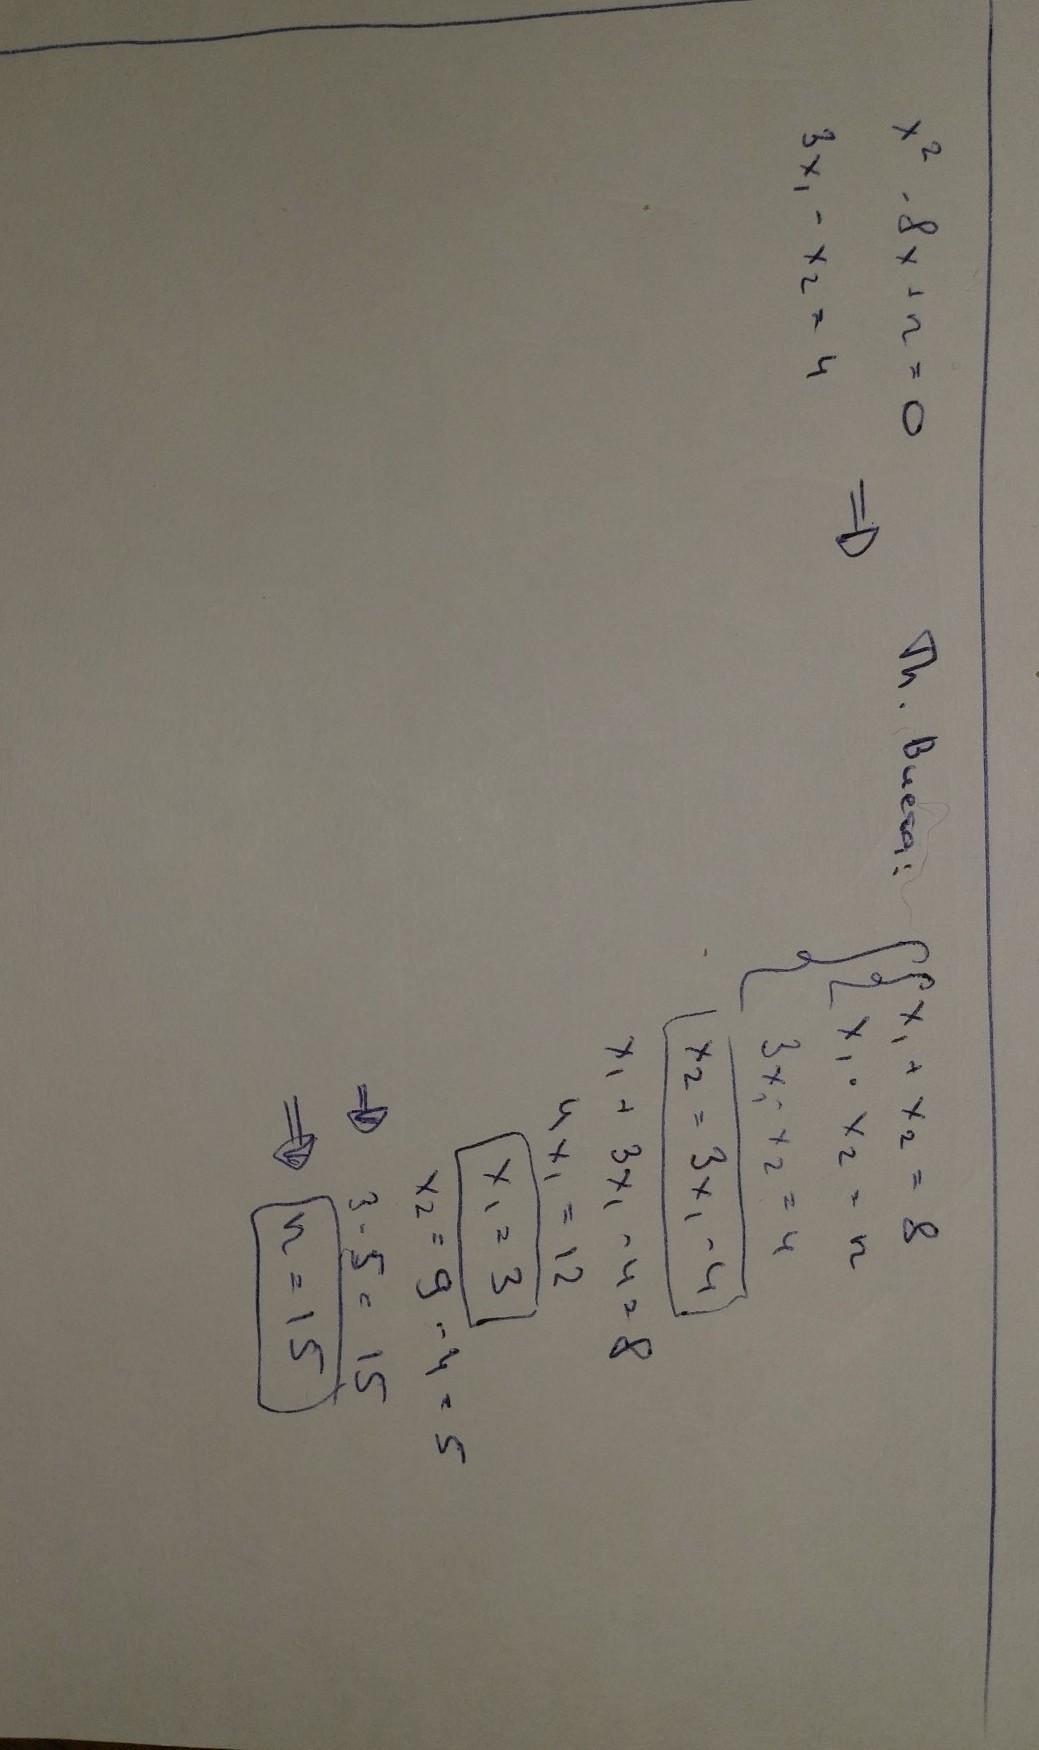 x² - 8x + n = 0
3x₁ - x₂ = 4
⇒
Th. Виета:
x₁ + x₂ = 8
x₁ · x₂ = n
3x₁ - x₂ = 4
x₂ = 3x₁ - 4
x₁ + 3x₁ - 4 = 8
4x₁ = 12
x₁ = 3
x₂ = 9 - 4 = 5
⇒ 3 · 5 = 15
⇒ n = 15